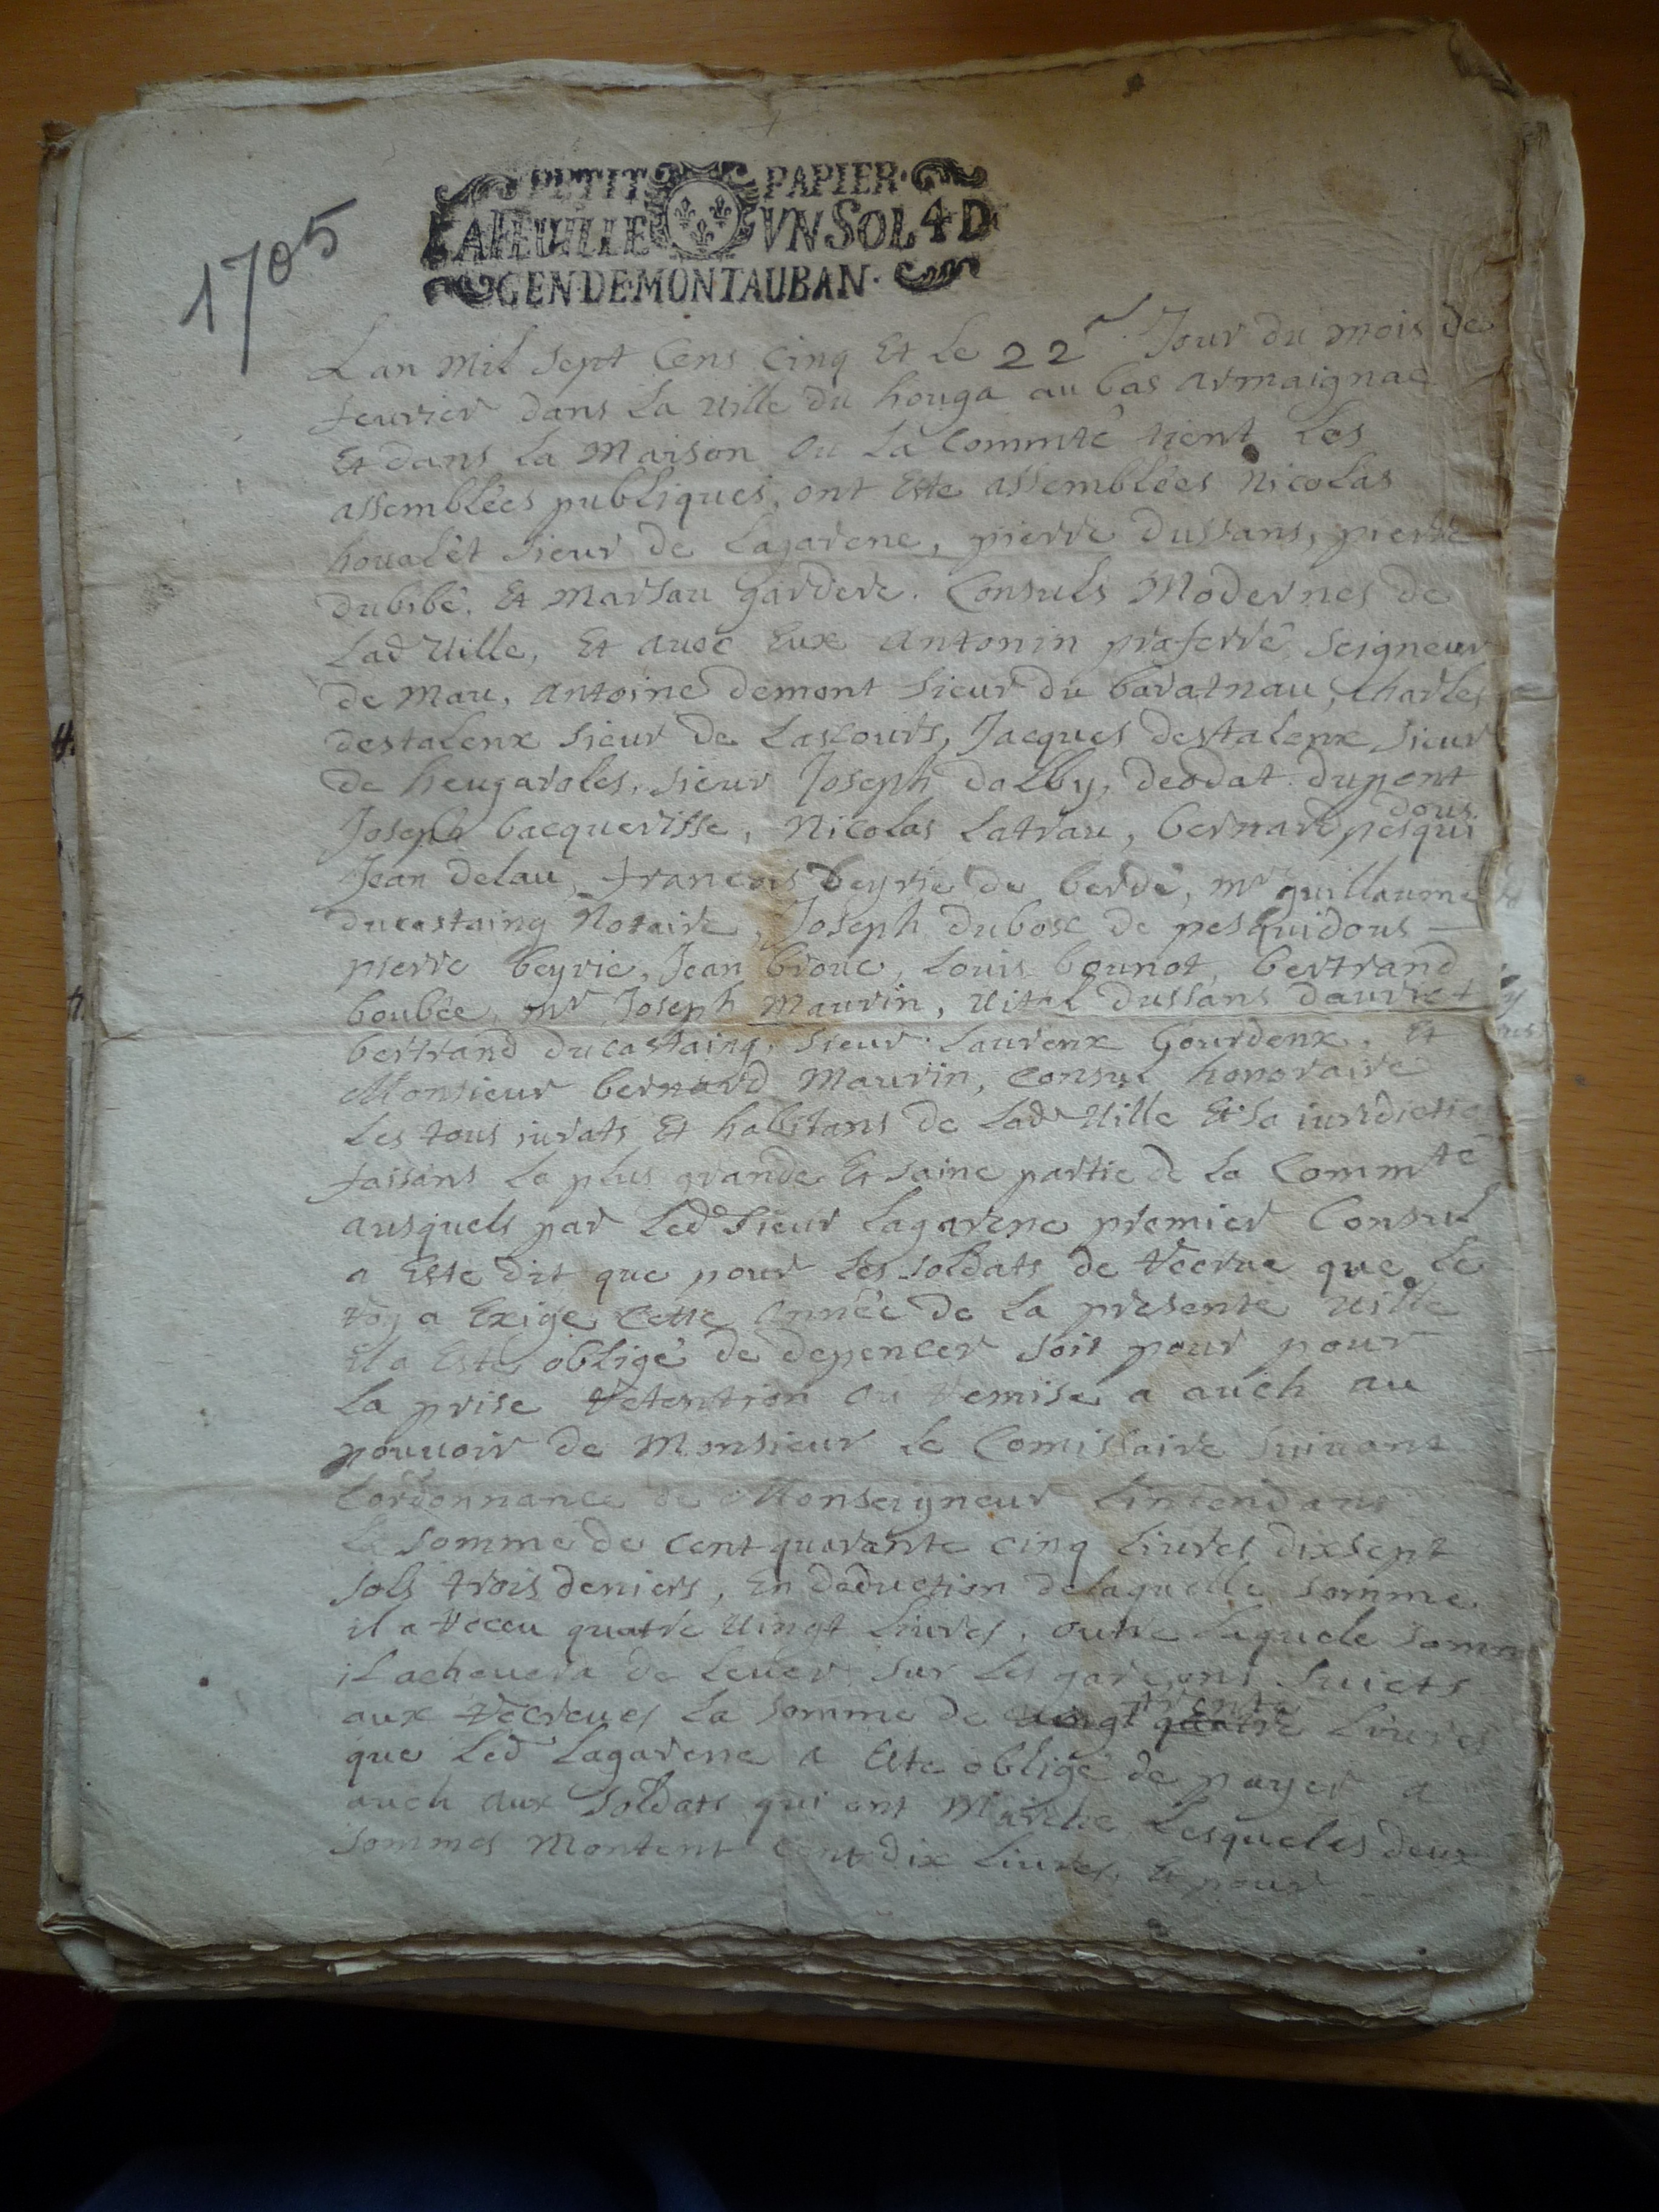 1705
PETIT PAPIER
LA FEUILLE VN SOL 4 D
GEN·DE·MONTAUBAN·
L an mil sept Cens Cinq Et Le 22e Jour du mois de
feurier dans La uille du houga au bas armaignac
Et dans La Maison ou La Commté tient Les
assemblées publiques, ont Este assemblées Nicolas
houalêt sieur de Lagarene, pierre dussans, pierre
dubibé, Et Marsau gardere. Consuls Modernes de
Lad Uille, Et auec Eux antonin praferré, Seigneur
de mau, antoine demont sieur du baratnau, charles
destalenx sieur de Lascours, Jacques destalenx sieur
de heugaroles, sieur Joseph dalby, deodat dupont
Joseph bacquerisse, Nicolas Latrau, bernard pesqui
dous
Jean delau, francois beyrie de berdé, mr guillaume
ducastaing Notaire, Joseph dubosc de pesquidous
pierre beyrie, Jean brouc, Louis bounot, bertrand
boubée, mr Joseph Maurin, Uital dussans dauriet
bertrand ducastaing, sieur Laurenx Gourdenx, Et
Monsieur bernard Maurin, Consul honoraire
Les tous jurats Et habitans de Lad Uille Et sa iuridictio
faisans La plus grande Et saine partie de La Commté
ausquels par Led sieur Lagarene premier Consul
a Este dit que pour Les soldats de recrue que Le
roy a Exigé Cette année de La presente uille
il a Esté obligé de depencer soit pour pour
La prise retention ou remise a auch au
pouuoir de Monsieur Le Comissaire suiuant
Lordonnance de Monseigneur Lintendant
La somme de Cent quarante cinq Liures dixsept
sols trois deniers, En deduction delaquelle somme
il a receu quatre uingt Liures, outre Laquele somm
il acheuera de Leuer sur Les garçons suiets
aux recrues La somme de uingt quatre trente Liures
que Led Lagarene a Esté obligé de payer a
auch aux soldats qui ont Marché Lesqueles deux
sommes Montent Cent dix Liures, Et pour